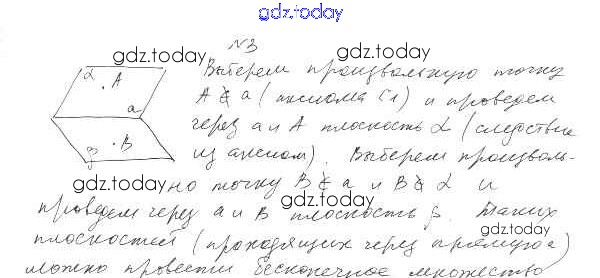 gdz.today
№3
gdz.today gdz.today
Выберем произвольную точку
α A
A ∉ a (аксиома C1) и проведем
a
через a и A плоскость α (следствие
β B
из аксиом). Выберем произволь-
gdz.today
но точку B ∉ a и B ∉ α и
gdz.today
проведем через a и B плоскость β. Таких
gdz.today
плоскостей (проходящих через прямую a)
можно провести бесконечное множество